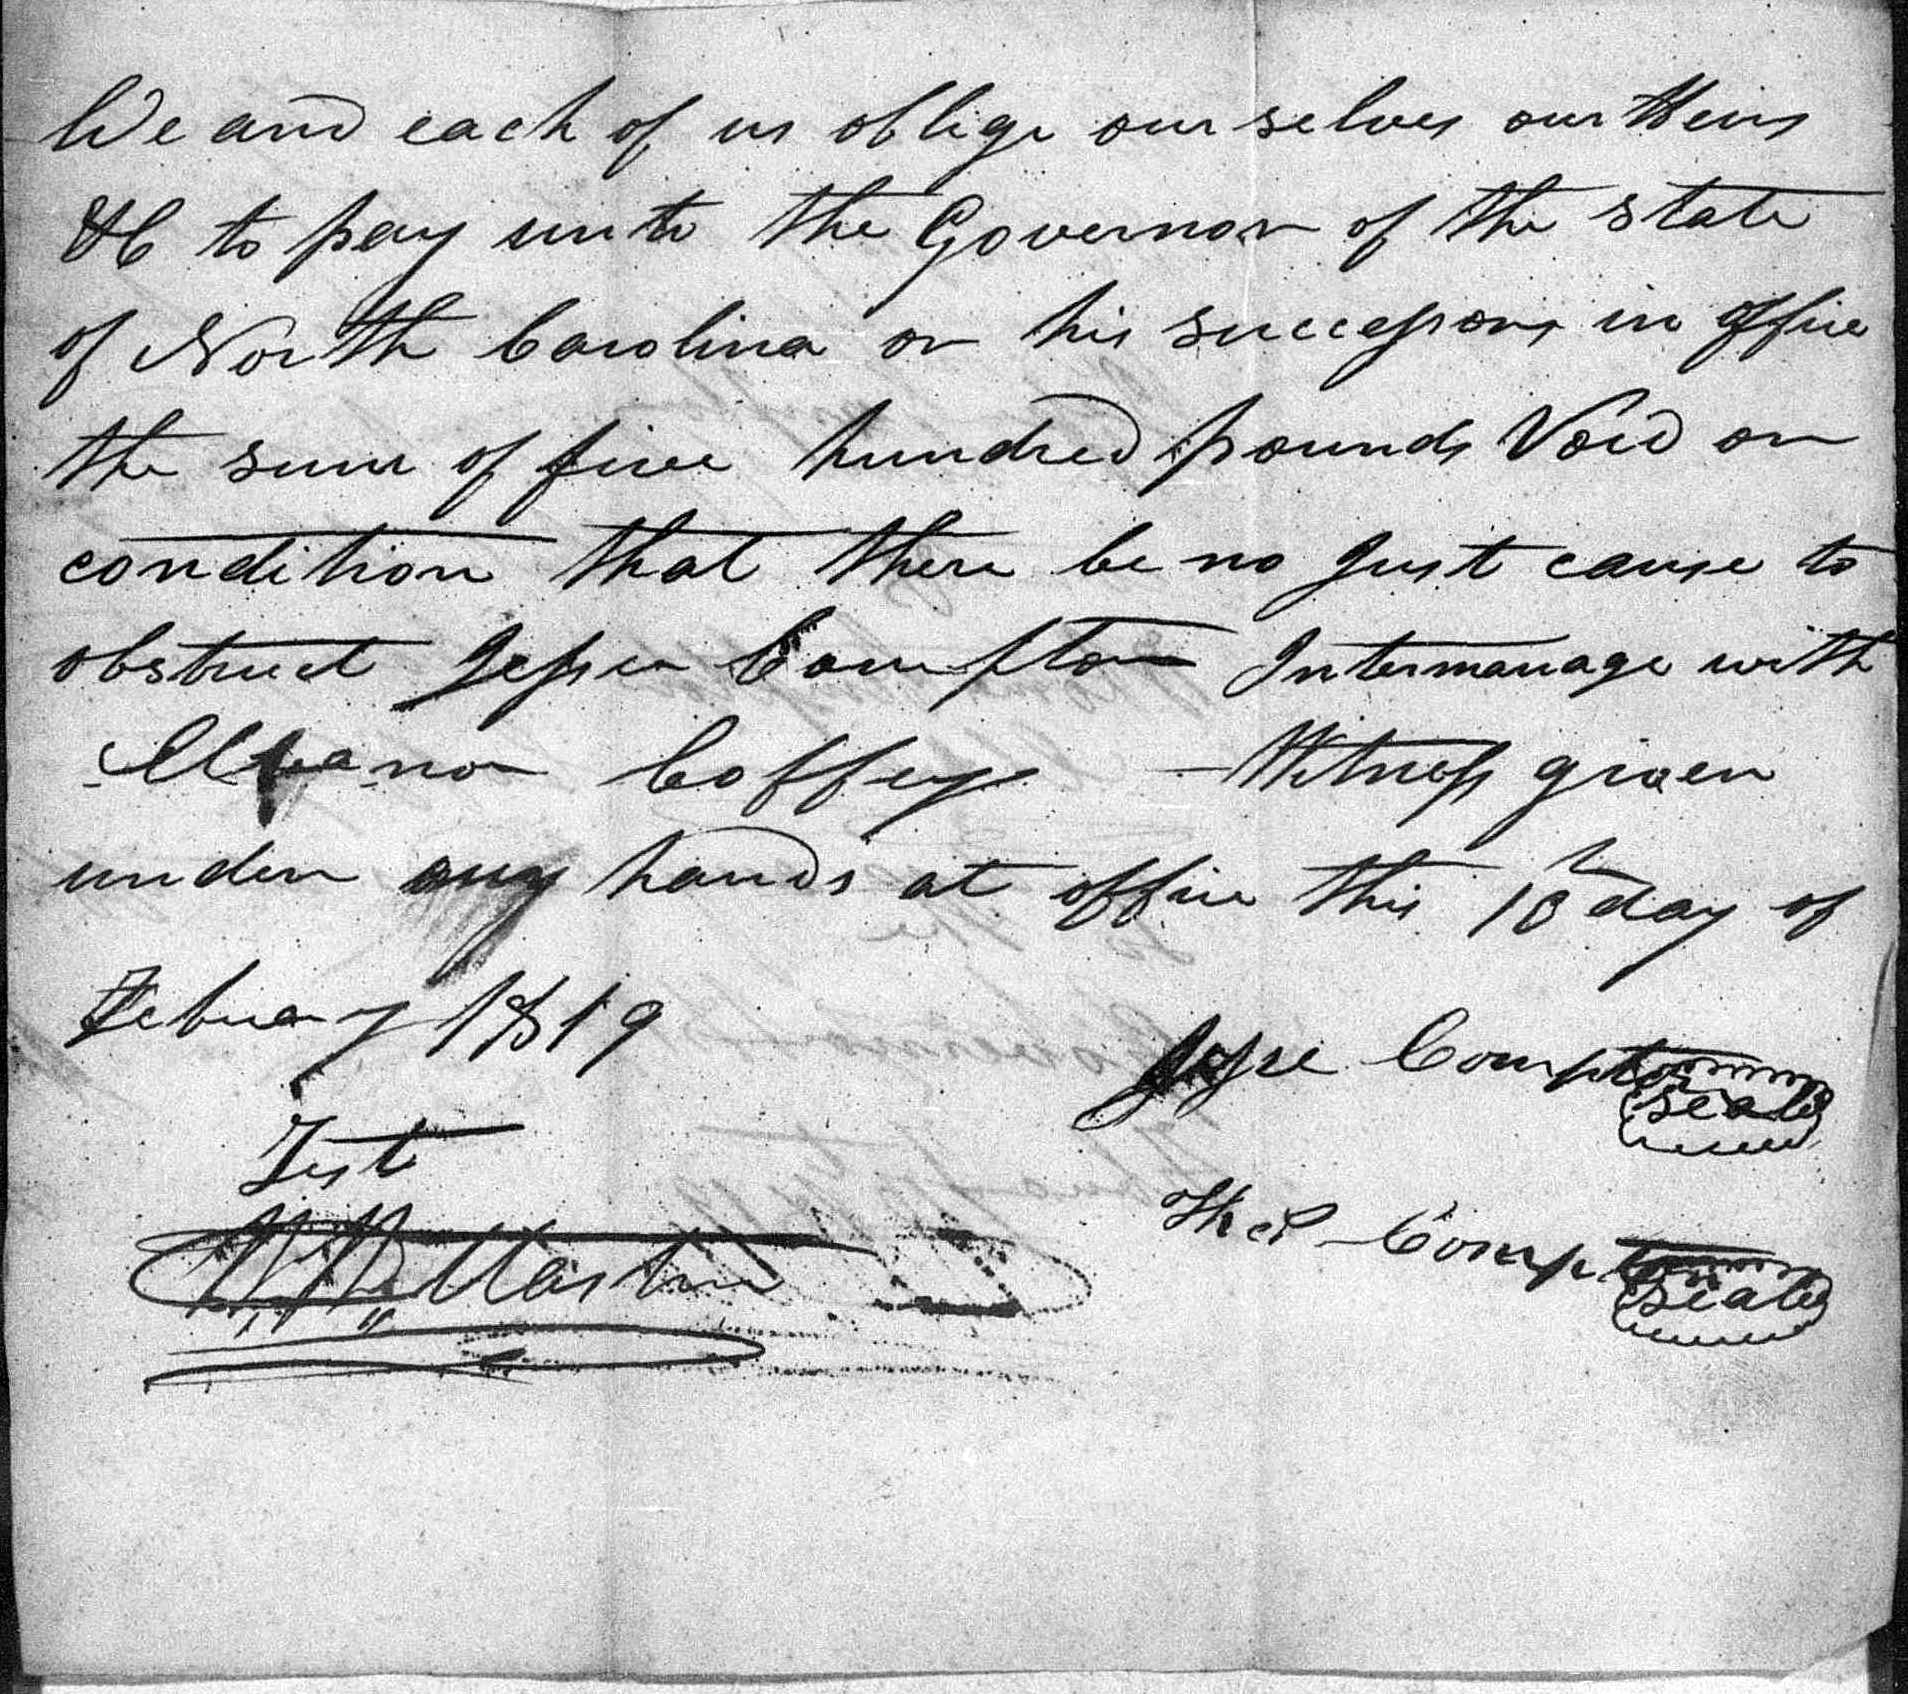 We and each of us oblige our selves our Heirs
&C to pay unto the Governor of the state
of North Carolina or his successors in office
the sum of five hundred pounds Void on
condition that there be no Just cause to
obstruct Jessee Compton Intermarage with
Coffey Witness given
under hands at office this 18 day of
Febuary 1819
Jesse Compton seale
Test
Compton seale